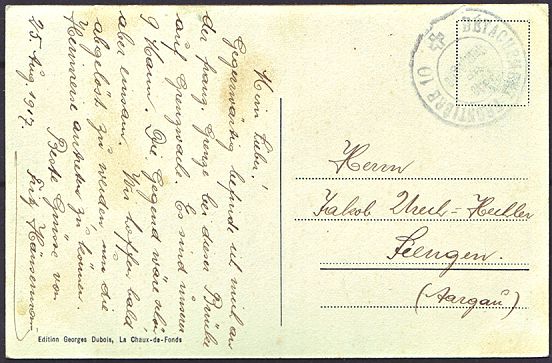 Mein Lieber!
Gegenwärtig befinde ich mich an
der franz. Grenze bei dieser Brücke
auf Grenzwache. Es sind unserer
9 Mann. Die Gegend wäre schön
aber einsam. Wir hoffen bald
abgelöst zu werden um die
Heimreise antreten zu können.
Beste Grüsse von
Fritz
25. Aug. 1917.
Edition Georges Dubois, La Chaux-de-Fonds
DETACHEMENT
101
Herrn
Jakob Urech-Hechler
Seengen.
(Aargau)